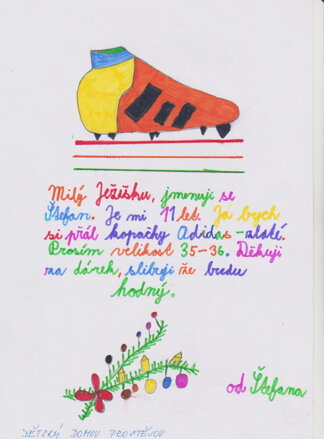 Milý Ježíšku, jmenuji se
Štefan. Je mi 11 let. Já bych
si přál kopačky Adidas - zlaté.
Prosím velikost 35-36. Děkuji
za dárek, slibuji že budu
hodný.
od Štefana
DĚTSKÝ DOMOV PROSTĚJOV